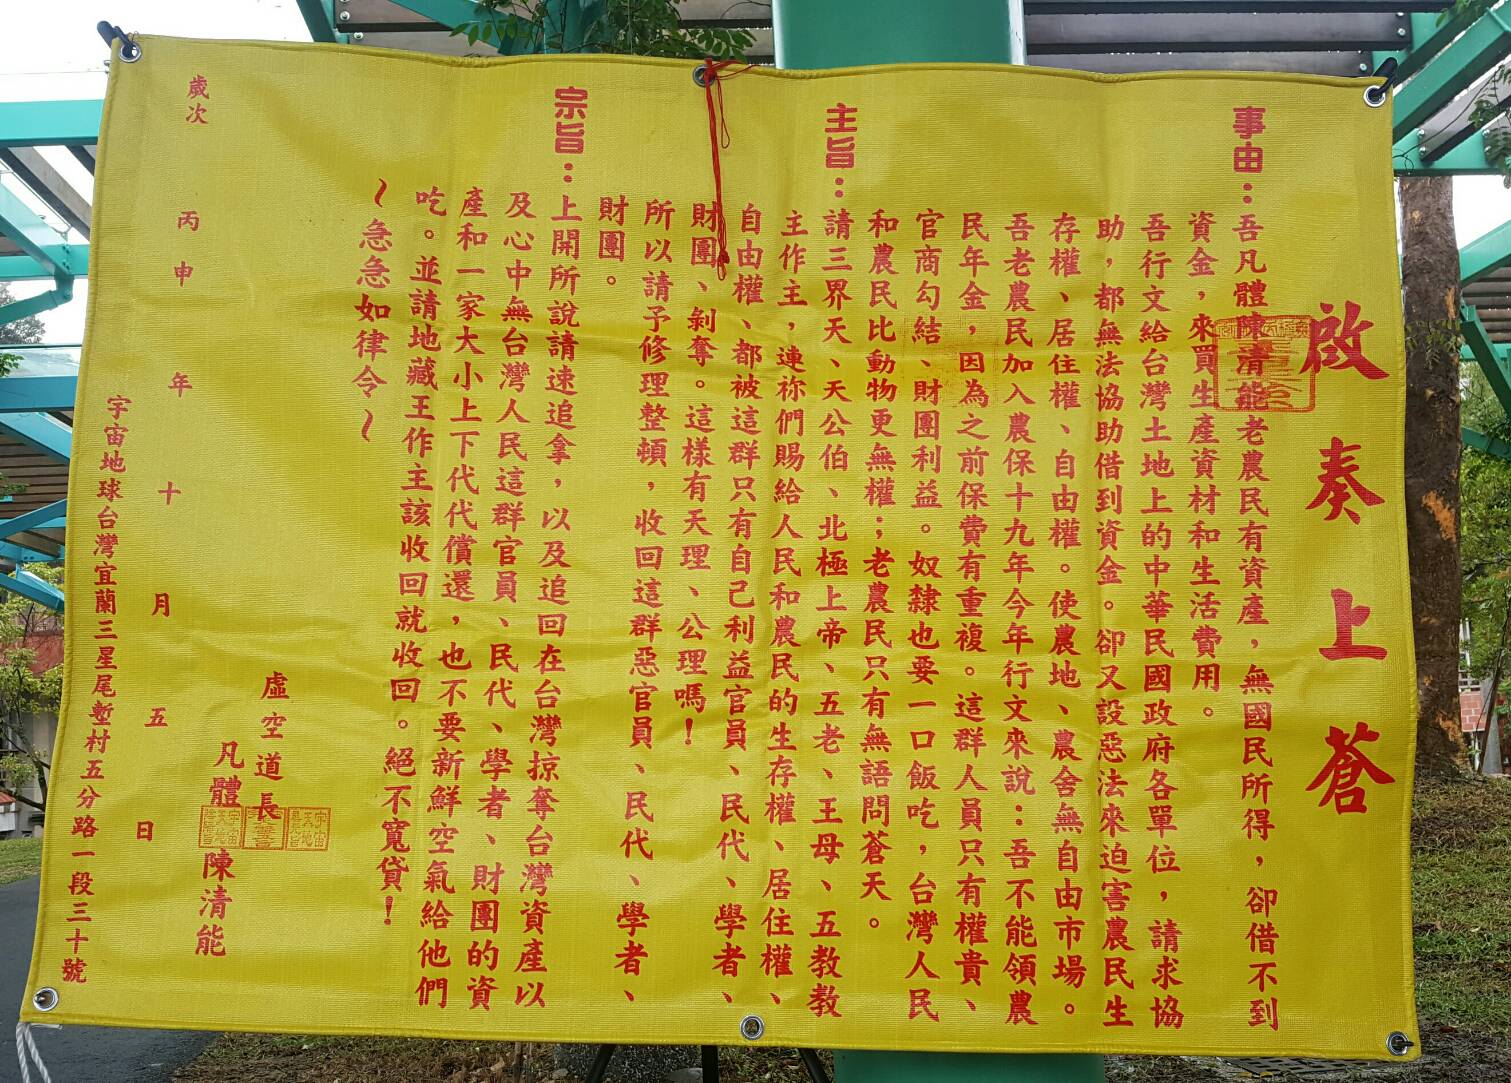 啟奏上蒼
事由：吾凡體陳清能老農民有資產，無國民所得，卻借不到
資金，來買生產資材和生活費用。
吾行文給台灣土地上的中華民國政府各單位，請求協
助，都無法協助借到資金。卻又設惡法來迫害農民生
存權、居住權、自由權。使農地、農舍無自由市場。
吾老農民加入農保十九年今年行文來說：吾不能領農
民年金，因為之前保費有重複。這群人員只有權貴、
官商勾結、財團利益。奴隸也要一口飯吃，台灣人民
和農民比動物更無權；老農民只有無語問蒼天。
主旨：請三界天、天公伯、北極上帝、五老、王母、五教教
主作主，連祢們賜給人民和農民的生存權、居住權、
自由權、都被這群只有自己利益官員、民代、學者、
財團、剝奪。這樣有天理、公理嗎！
所以請予修理整頓，收回這群惡官員、民代、學者、
財團。
宗旨：上開所說請速追拿，以及追回在台灣掠奪台灣資產以
及心中無台灣人民這群官員、民代、學者、財團的資
產和一家大小上下代代償還，也不要新鮮空氣給他們
吃。並請地藏王作主該收回就收回。絕不寬貸！
~急急如律令~
虛空道長
凡體 陳清能
歲次 丙申年十月五日
宇宙地球台灣宜蘭三星尾塹村五分路一段三十號